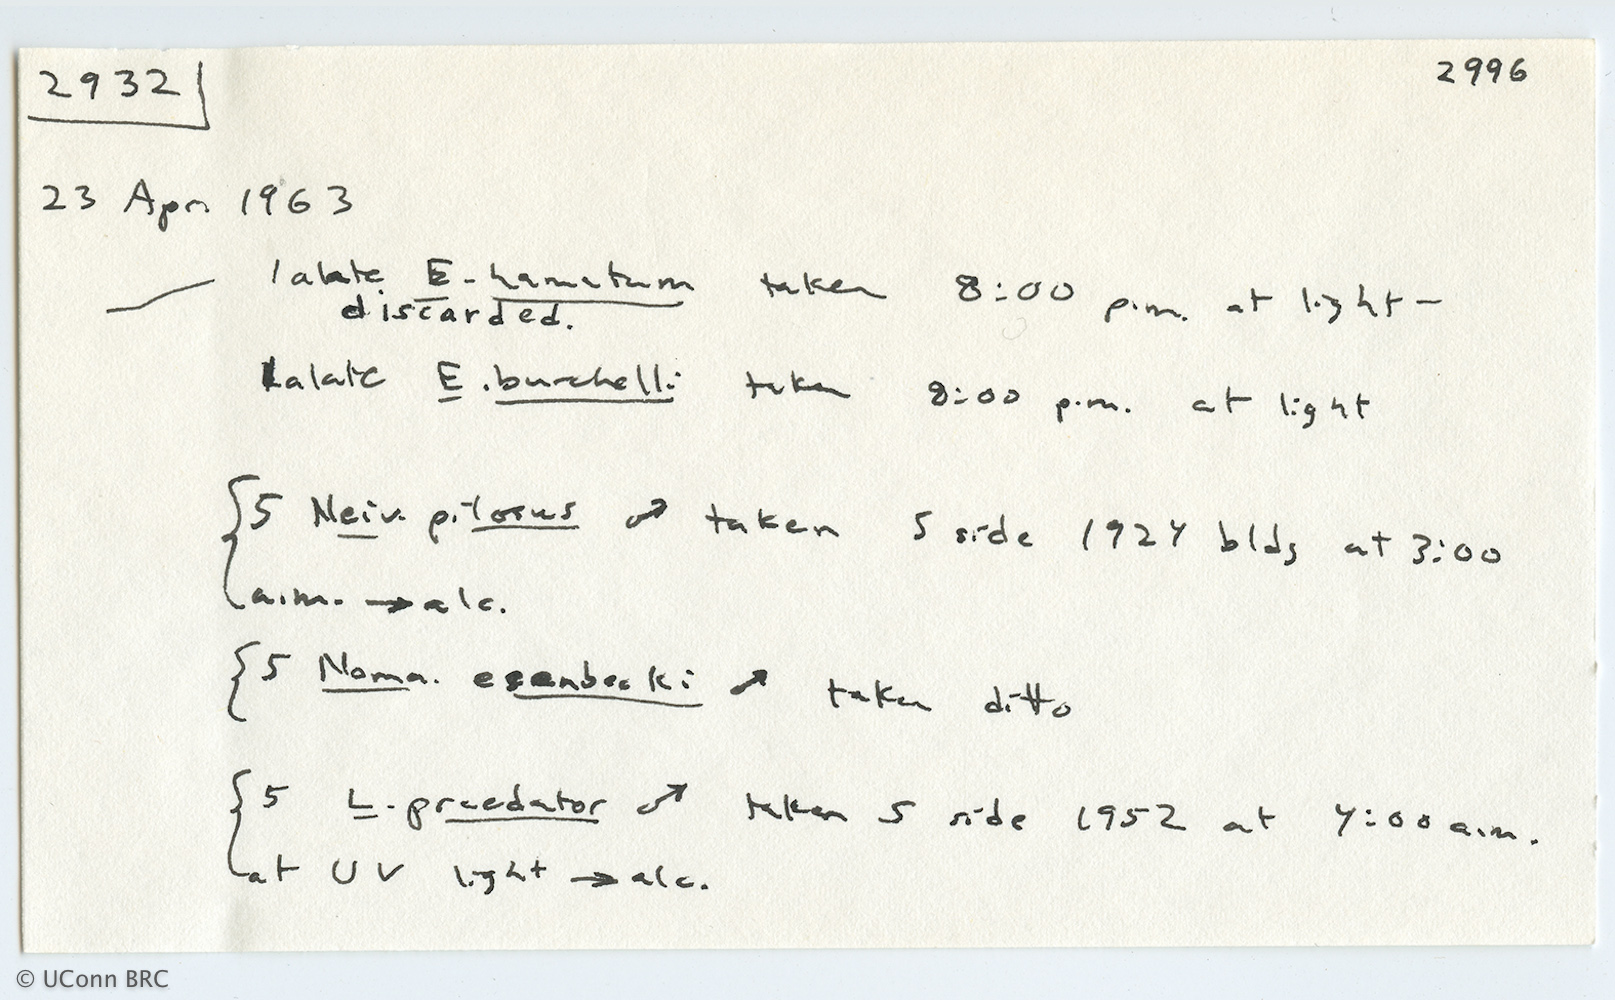 2932 2996
23 Apr. 1963
1 alate E. hamatum taken 8:00 p.m. at light -
discarded.
1 alate E. burchelli taken 8:00 p.m. at light
5 Neiv. pilosus ♂ taken S side 1924 bldg at 3:00
a.m. → alc.
5 Noma. esenbecki ♂ taken ditto
5 L. praedator ♂ taken S side 1952 at 4:00 a.m.
at UV light → alc.
© UConn BRC